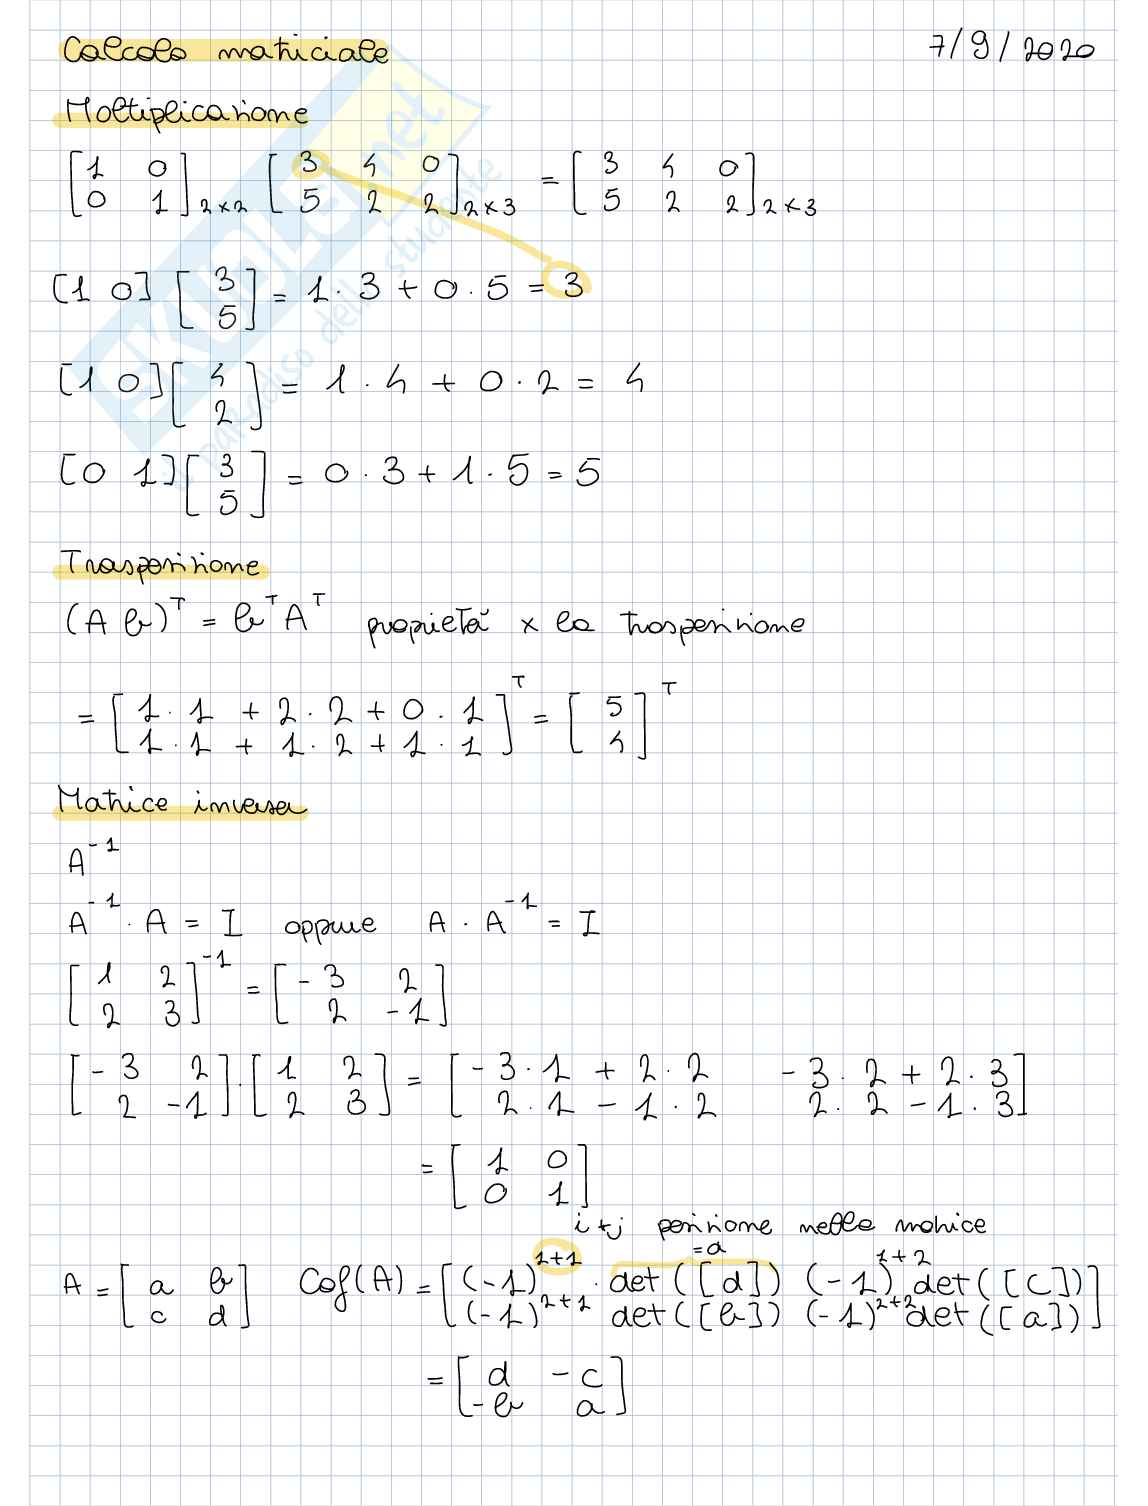 Calcolo matriciale 7/9/2020
Moltiplicazione
[1 0; 0 1]2x2 [3 4 0; 5 2 2]2x3 = [3 4 0; 5 2 2]2x3
[1 0] [3; 5] = 1·3 + 0·5 = 3
[1 0] [4; 2] = 1·4 + 0·2 = 4
[0 1] [3; 5] = 0·3 + 1·5 = 5
Trasposizione
(A b)^T = b^T A^T proprietà x la trasposizione
= [1·1 + 2·2 + 0·1; 1·1 + 1·2 + 1·1]^T = [5; 4]^T
Matrice inversa
A^-1
A^-1 · A = I oppure A · A^-1 = I
[1 2; 2 3]^-1 = [-3 2; 2 -1]
[-3 2; 2 -1] · [1 2; 2 3] = [-3·1 + 2·2 -3·2 + 2·3; 2·1 - 1·2 2·2 - 1·3]
= [1 0; 0 1]
i+j posizione nella matrice
=d
A = [a b; c d] Cof(A) = [(-1)^1+1 · det([d]) (-1)^1+2 det([c]); (-1)^2+1 det([b]) (-1)^2+2 det([a])]
= [d -c; -b a]
SKUOLA.net
il paradiso dello studente